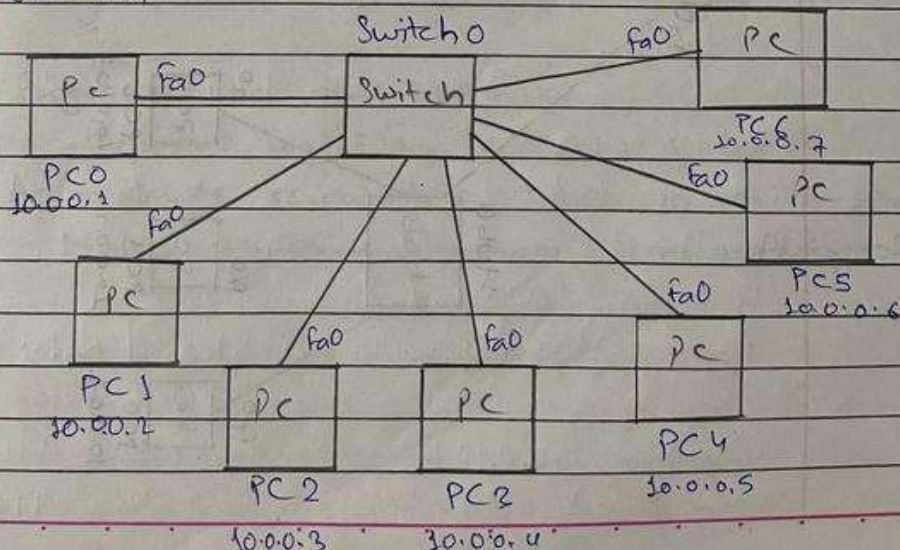 Switch 0
Switch
PC
Fa0
PC0
10.0.0.1
Fa0
PC
PC1
10.0.0.2
Fa0
PC
PC2
10.0.0.3
Fa0
PC
PC3
10.0.0.4
Fa0
PC
PC4
10.0.0.5
Fa0
PC
PC5
10.0.0.6
Fa0
PC
PC6
10.0.8.7